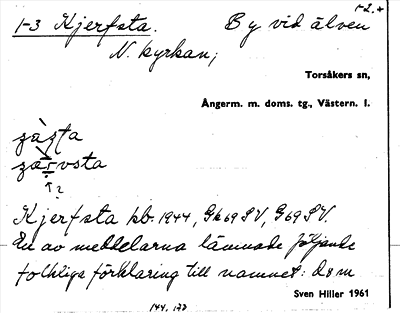 1-2.+
1-3 Kjerfsta. By vid älven
N. kyrkan;
Torsåkers sn,
Ångerm. m. doms. tg., Västern. l.
Kjerfsta kb. 1944, Gk69SV, G69SV.
En av meddelarna lämnade följande
folkliga förklaring till namnet: då m
Sven Hiller 1961
144, 173